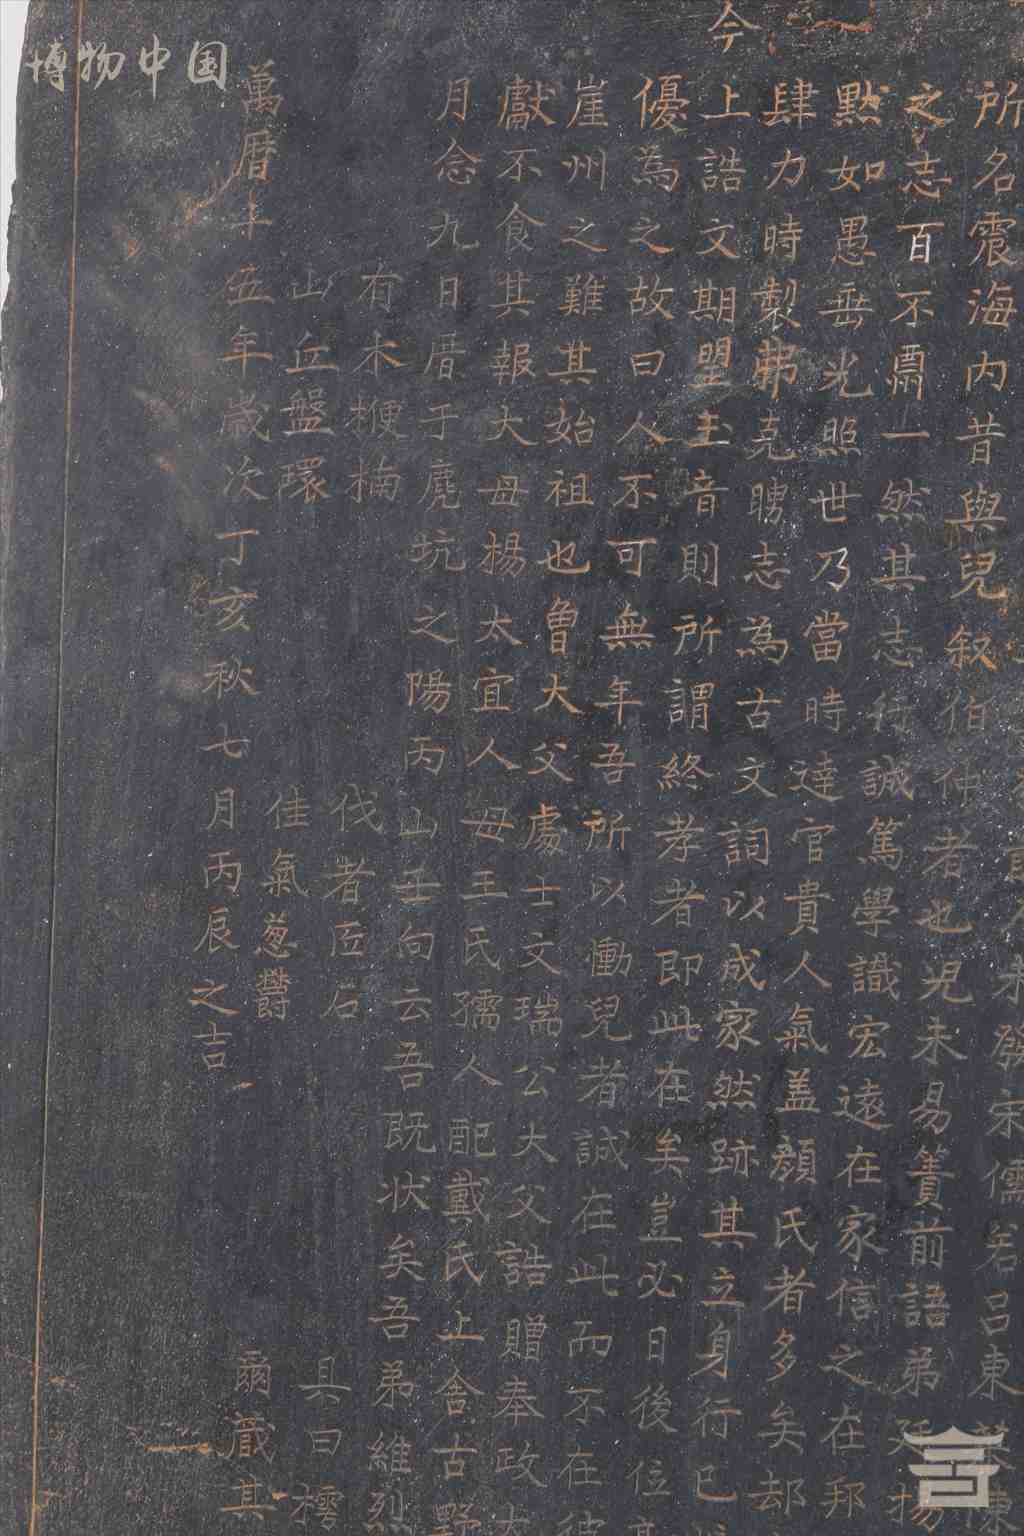 博物中国
所名震海内昔與兒叙伯仲者也兄未易簀前語弟廷揚
之志百不鬻一然其志行誠篤學識宏遠在家信之在邦
默如愚垂光照世乃當時達官貴人氣盖顏氏者多矣却
肆力時製弗克聘志為古文詞以成家然跡其立身行已
今
上誥文期塱主音則所謂終孝者即此在矣豈必日後位
優為之故曰人不可無年吾所以慟兒者誠在此而不在彼
崖州之難其始祖也曾大父處士文瑞公大父誥贈奉政大
獻不食其報大母楊太宜人母王氏孺人配戴氏上舍古野
月念九日厝于麂坑之陽丙山壬向云吾既状矣吾弟維烈
有木楩楠 伐者匠石 具曰樗
山丘盤環 佳氣葱欝 爾蕆其
萬曆十五年歲次丁亥秋七月丙辰之吉